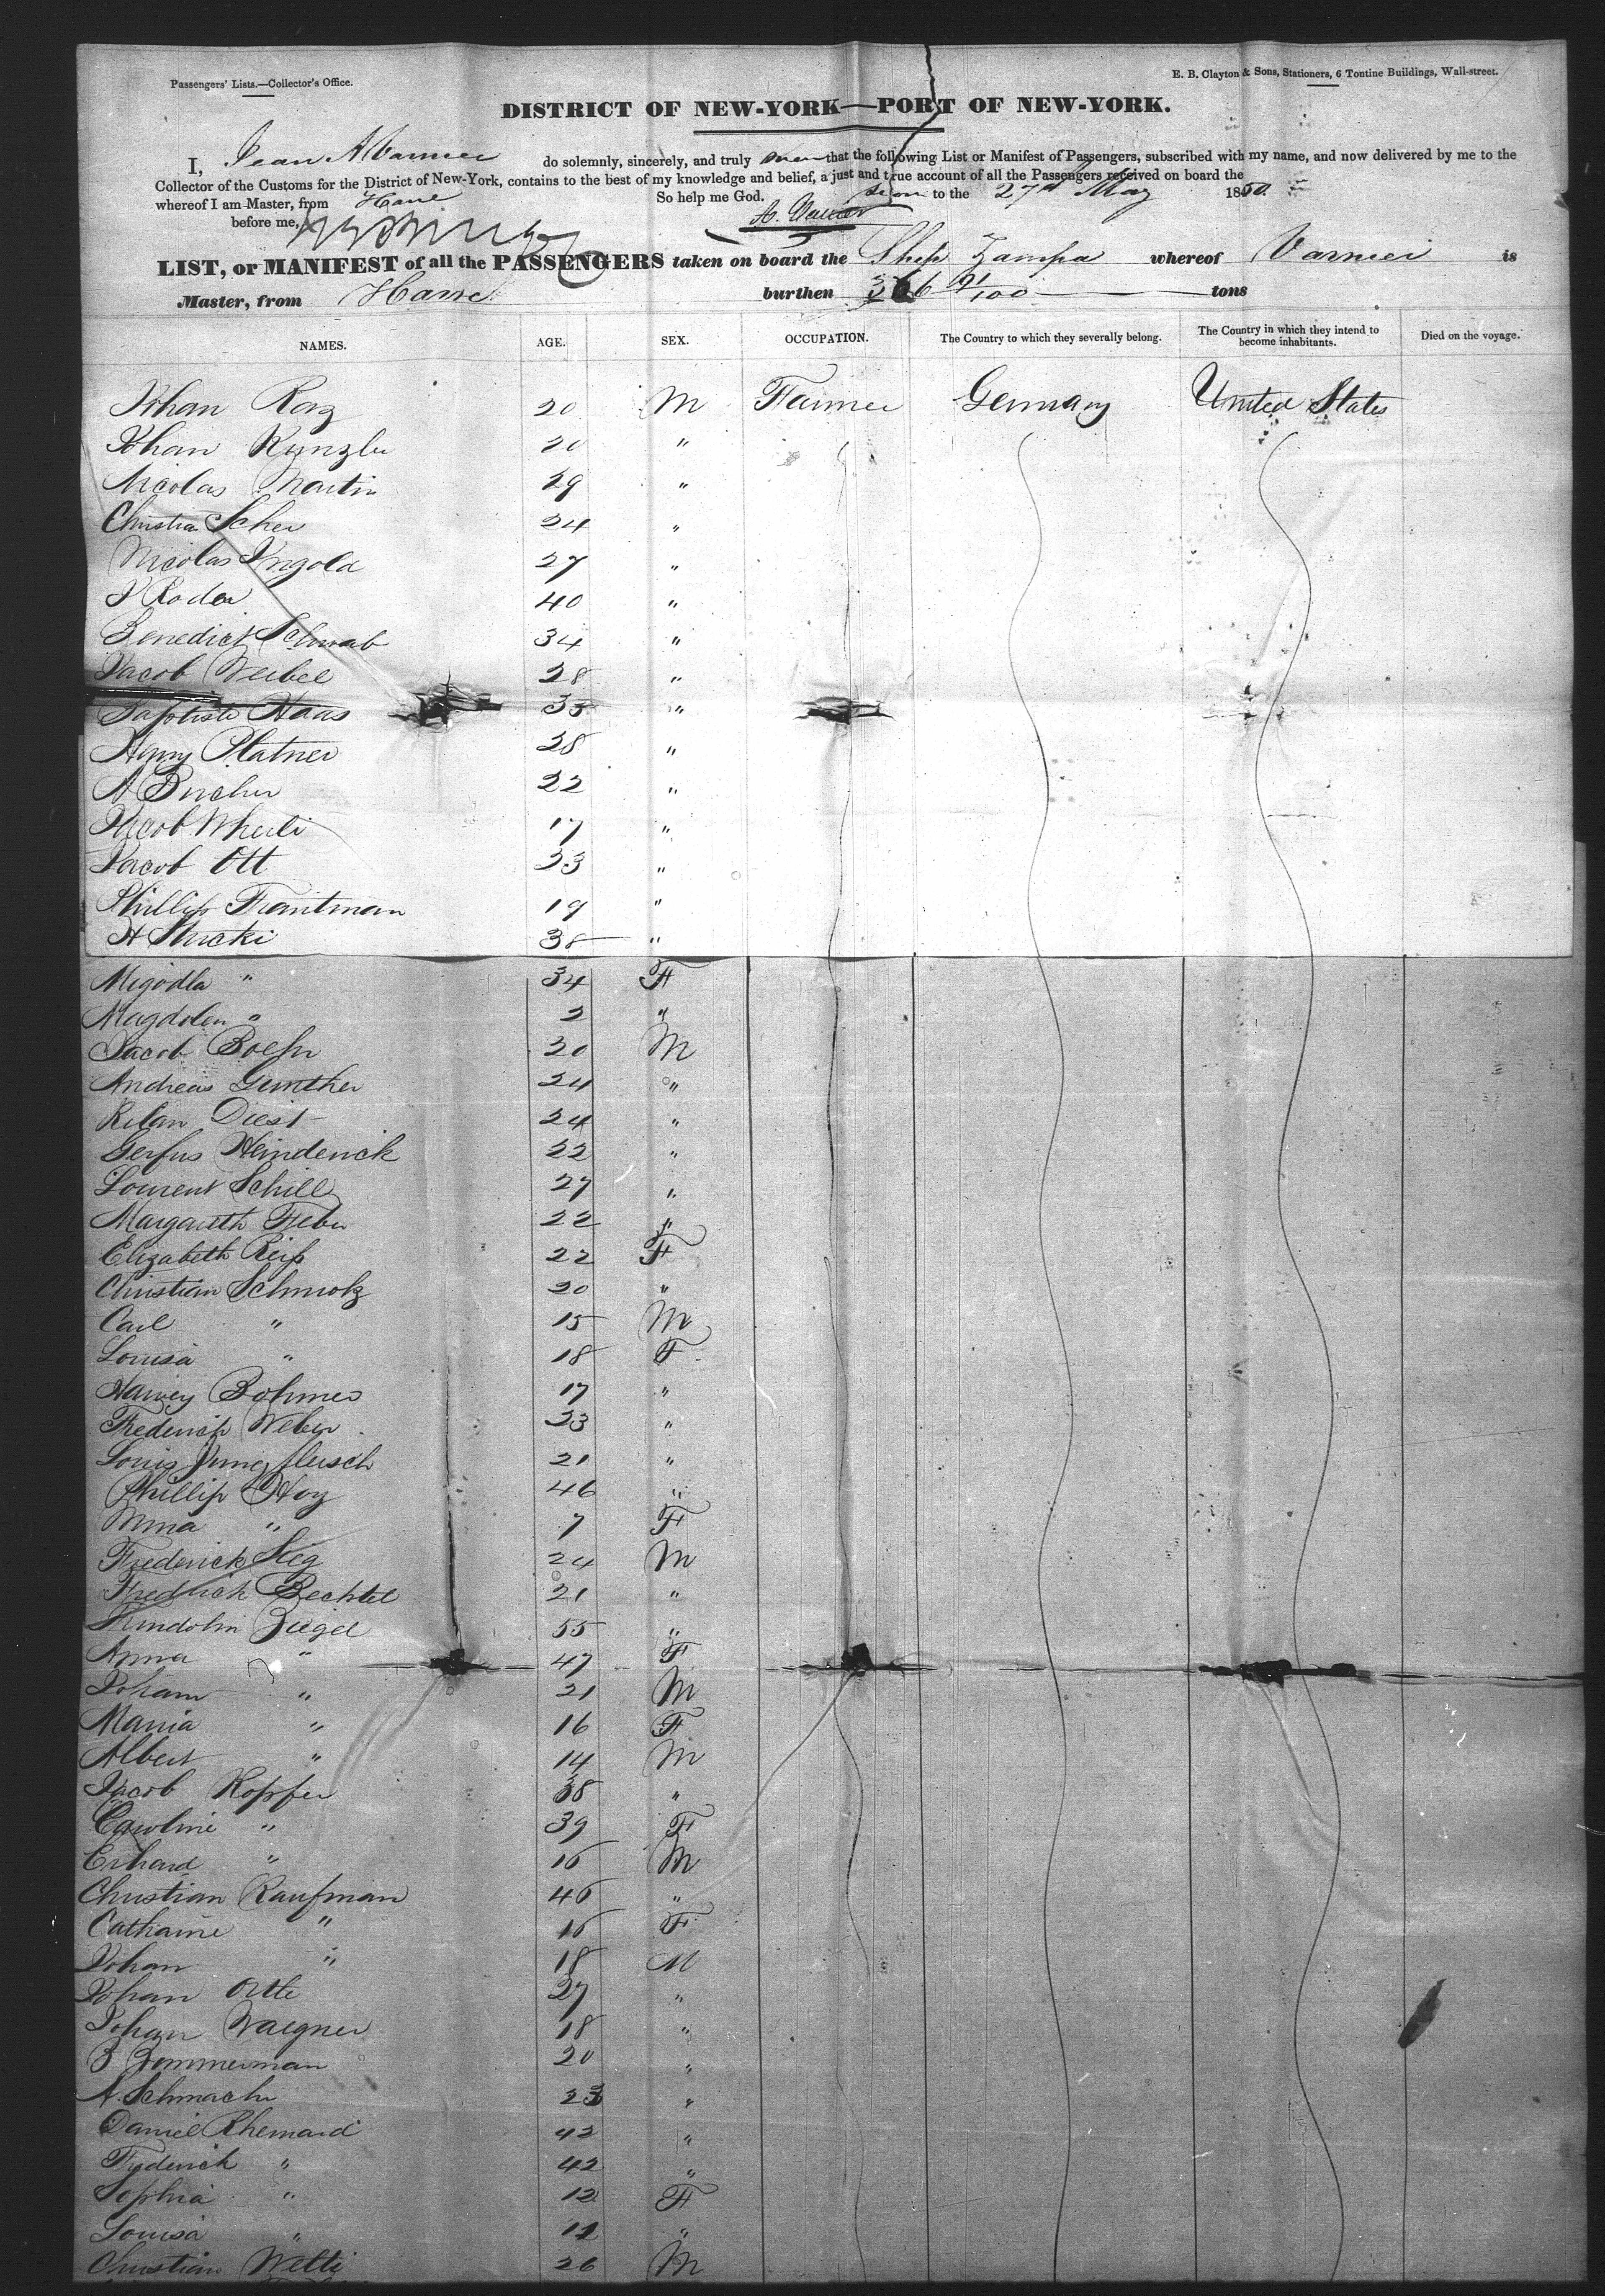 Passengers' Lists.—Collector's Office.
E. B. Clayton & Sons, Stationers, 6 Tontine Buildings, Wall-street.
DISTRICT OF NEW-YORK—PORT OF NEW-YORK.
I, Jean A Varnier do solemnly, sincerely, and truly swear that the following List or Manifest of Passengers, subscribed with my name, and now delivered by me to the
Collector of the Customs for the District of New-York, contains to the best of my knowledge and belief, a just and true account of all the Passengers received on board the
whereof I am Master, from Havre So help me God. sworn to the 27th May 1850.
before me,
LIST, or MANIFEST of all the PASSENGERS taken on board the Ship Zampa whereof Varnier is
Master, from Havre burthen 366 91/100 tons
NAMES. AGE. SEX. OCCUPATION. The Country to which they severally belong. The Country in which they intend to become inhabitants. Died on the voyage.
Johan Roz 20 M Farmer Germany United States
Johan Kunzler 20 "
Nicolas Martin 29 "
Christian Scher 24 "
Nicolas Ingold 27 "
J Roder 40 "
Benedict Schwab 34 "
Jacob Weibel 28 "
Baptiste Haas 35 "
Henry Platner 28 "
A Bucher 22 "
Jacob Wherli 17 "
Jacob Ott 23 "
Phillip Trautman 19 "
H Stucki 38 "
Migodla " 34 F
Magdolen " 2 "
Jacob Boehn 20 M
Andreas Gunther 24 "
Kilan Diest 24 "
Gerfus Heinderick 22 "
Laurent Schill 27 "
Margareth Feber 22 "
Elizabeth Reiss 22 F
Christian Schmolz 20 "
Carl " 15 M
Louisa " 18 F
Harvey Bohmer 17 "
Frederick Weber 23 "
Louis Jungfleisch 21 "
Phillip Hoy 46 "
Mina " 7 F
Frederick Sieg 24 M
Fredrick Bechtel 21 "
Ziegel 55 "
Anna " 47 F
Johann " 21 M
Maria " 16 F
Albert " 14 M
Jacob Kopfer 38 "
Caroline " 39 F
Erhard " 16 M
Christian Kaufman 46 "
Catharine " 16 F
Johan " 18 M
Johan Ortle 27 "
Johan Waegner 18 "
B Zommerman 20 "
A. Schmacher 23 "
Daniel Rhemard 42 "
Frederick " 42 "
Sophia " 12 F
Louisa " 11 "
Christian Welti 26 M